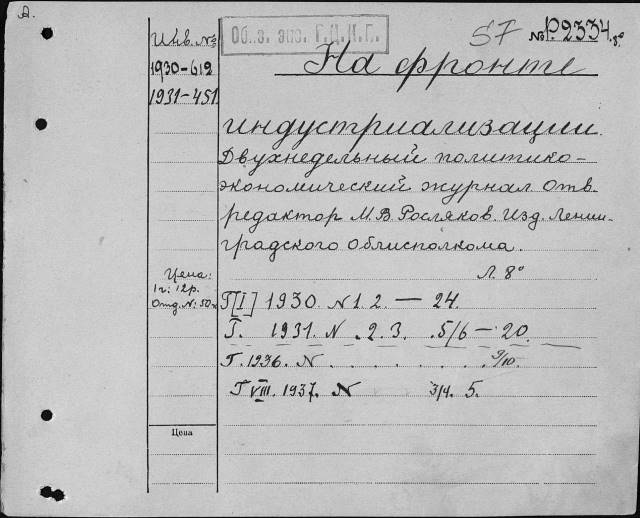 А.
Инв. №
1930-612
1931-451
Обяз. экз. Г.Ц.К.П.
57 № P.2334.8°
На фронте
индустриализации.
Двухнедельный политико-
экономический журнал Отв.
редактор М.В. Росляков. Изд. Ленин-
градского Облисполкома.
Л. 8°
Цена:
1 г: 12 р.
Отд. №: 50к
Г[I] 1930. N 1. 2. — 24.
Г. 1931. N .2. 3. .5/6 — 20.
Г. 1936. N . . . . . . . . . 9/10.
Г VIII. 1937. N 3/4. 5.
Цена